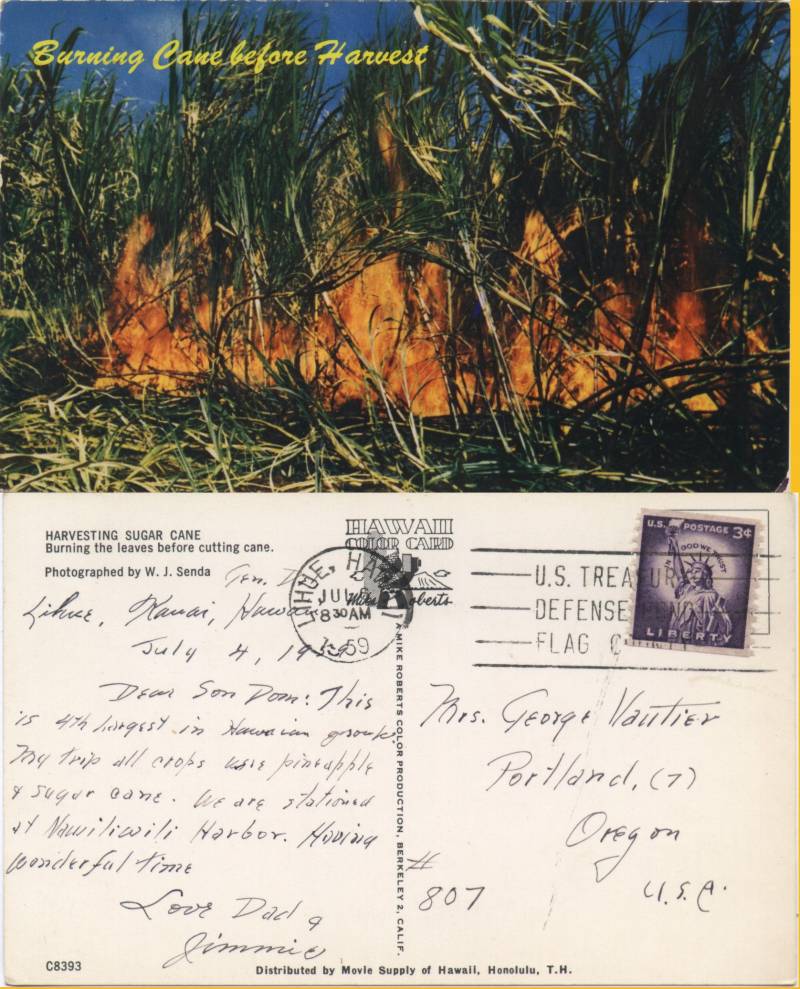 Burning Cane before Harvest
HARVESTING SUGAR CANE
Burning the leaves before cutting cane.
Photographed by W. J. Senda
HAWAII
COLOR CARD
Mike Roberts
LIHUE, HAWAII
JUL
8 30 AM
1959
U.S. TREASURY
DEFENSE BONDS
FLAG
U.S. POSTAGE 3¢
IN GOD WE TRUST
LIBERTY
Lihue, Kauai, Hawaii
July 4, 1959
Dear Son Dom: This
is 4th largest in Hawaiian group.
My trip all crops were pineapple
& sugar cane. We are stationed
at Nawiliwili Harbor. Having
wonderful time
Love Dad &
Jimmie
Mrs. George Vautier
Portland, (7)
Oregon
U.S.A.
#
807
A MIKE ROBERTS COLOR PRODUCTION, BERKELEY 2, CALIF.
C8393
Distributed by Movie Supply of Hawaii, Honolulu, T.H.